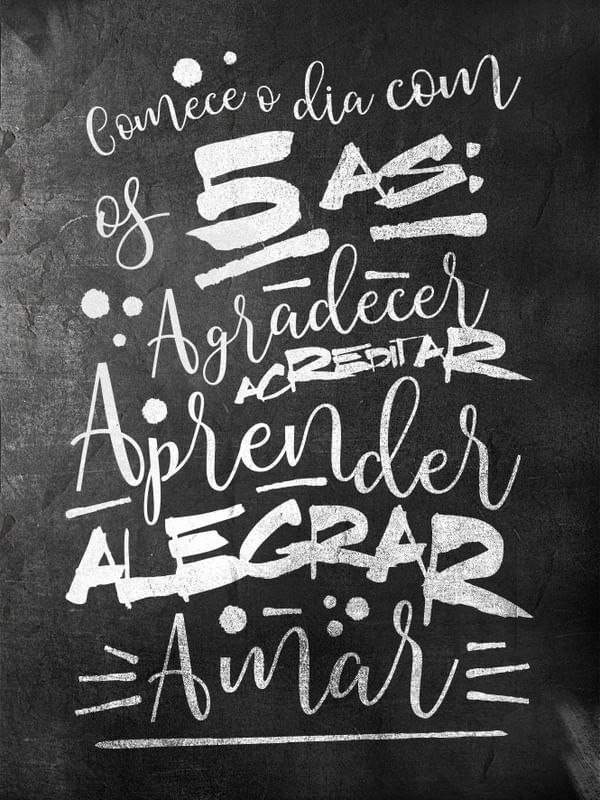 Comece o dia com
os 5 AS:
Agradecer
ACREDITAR
Aprender
ALEGRAR
Amar